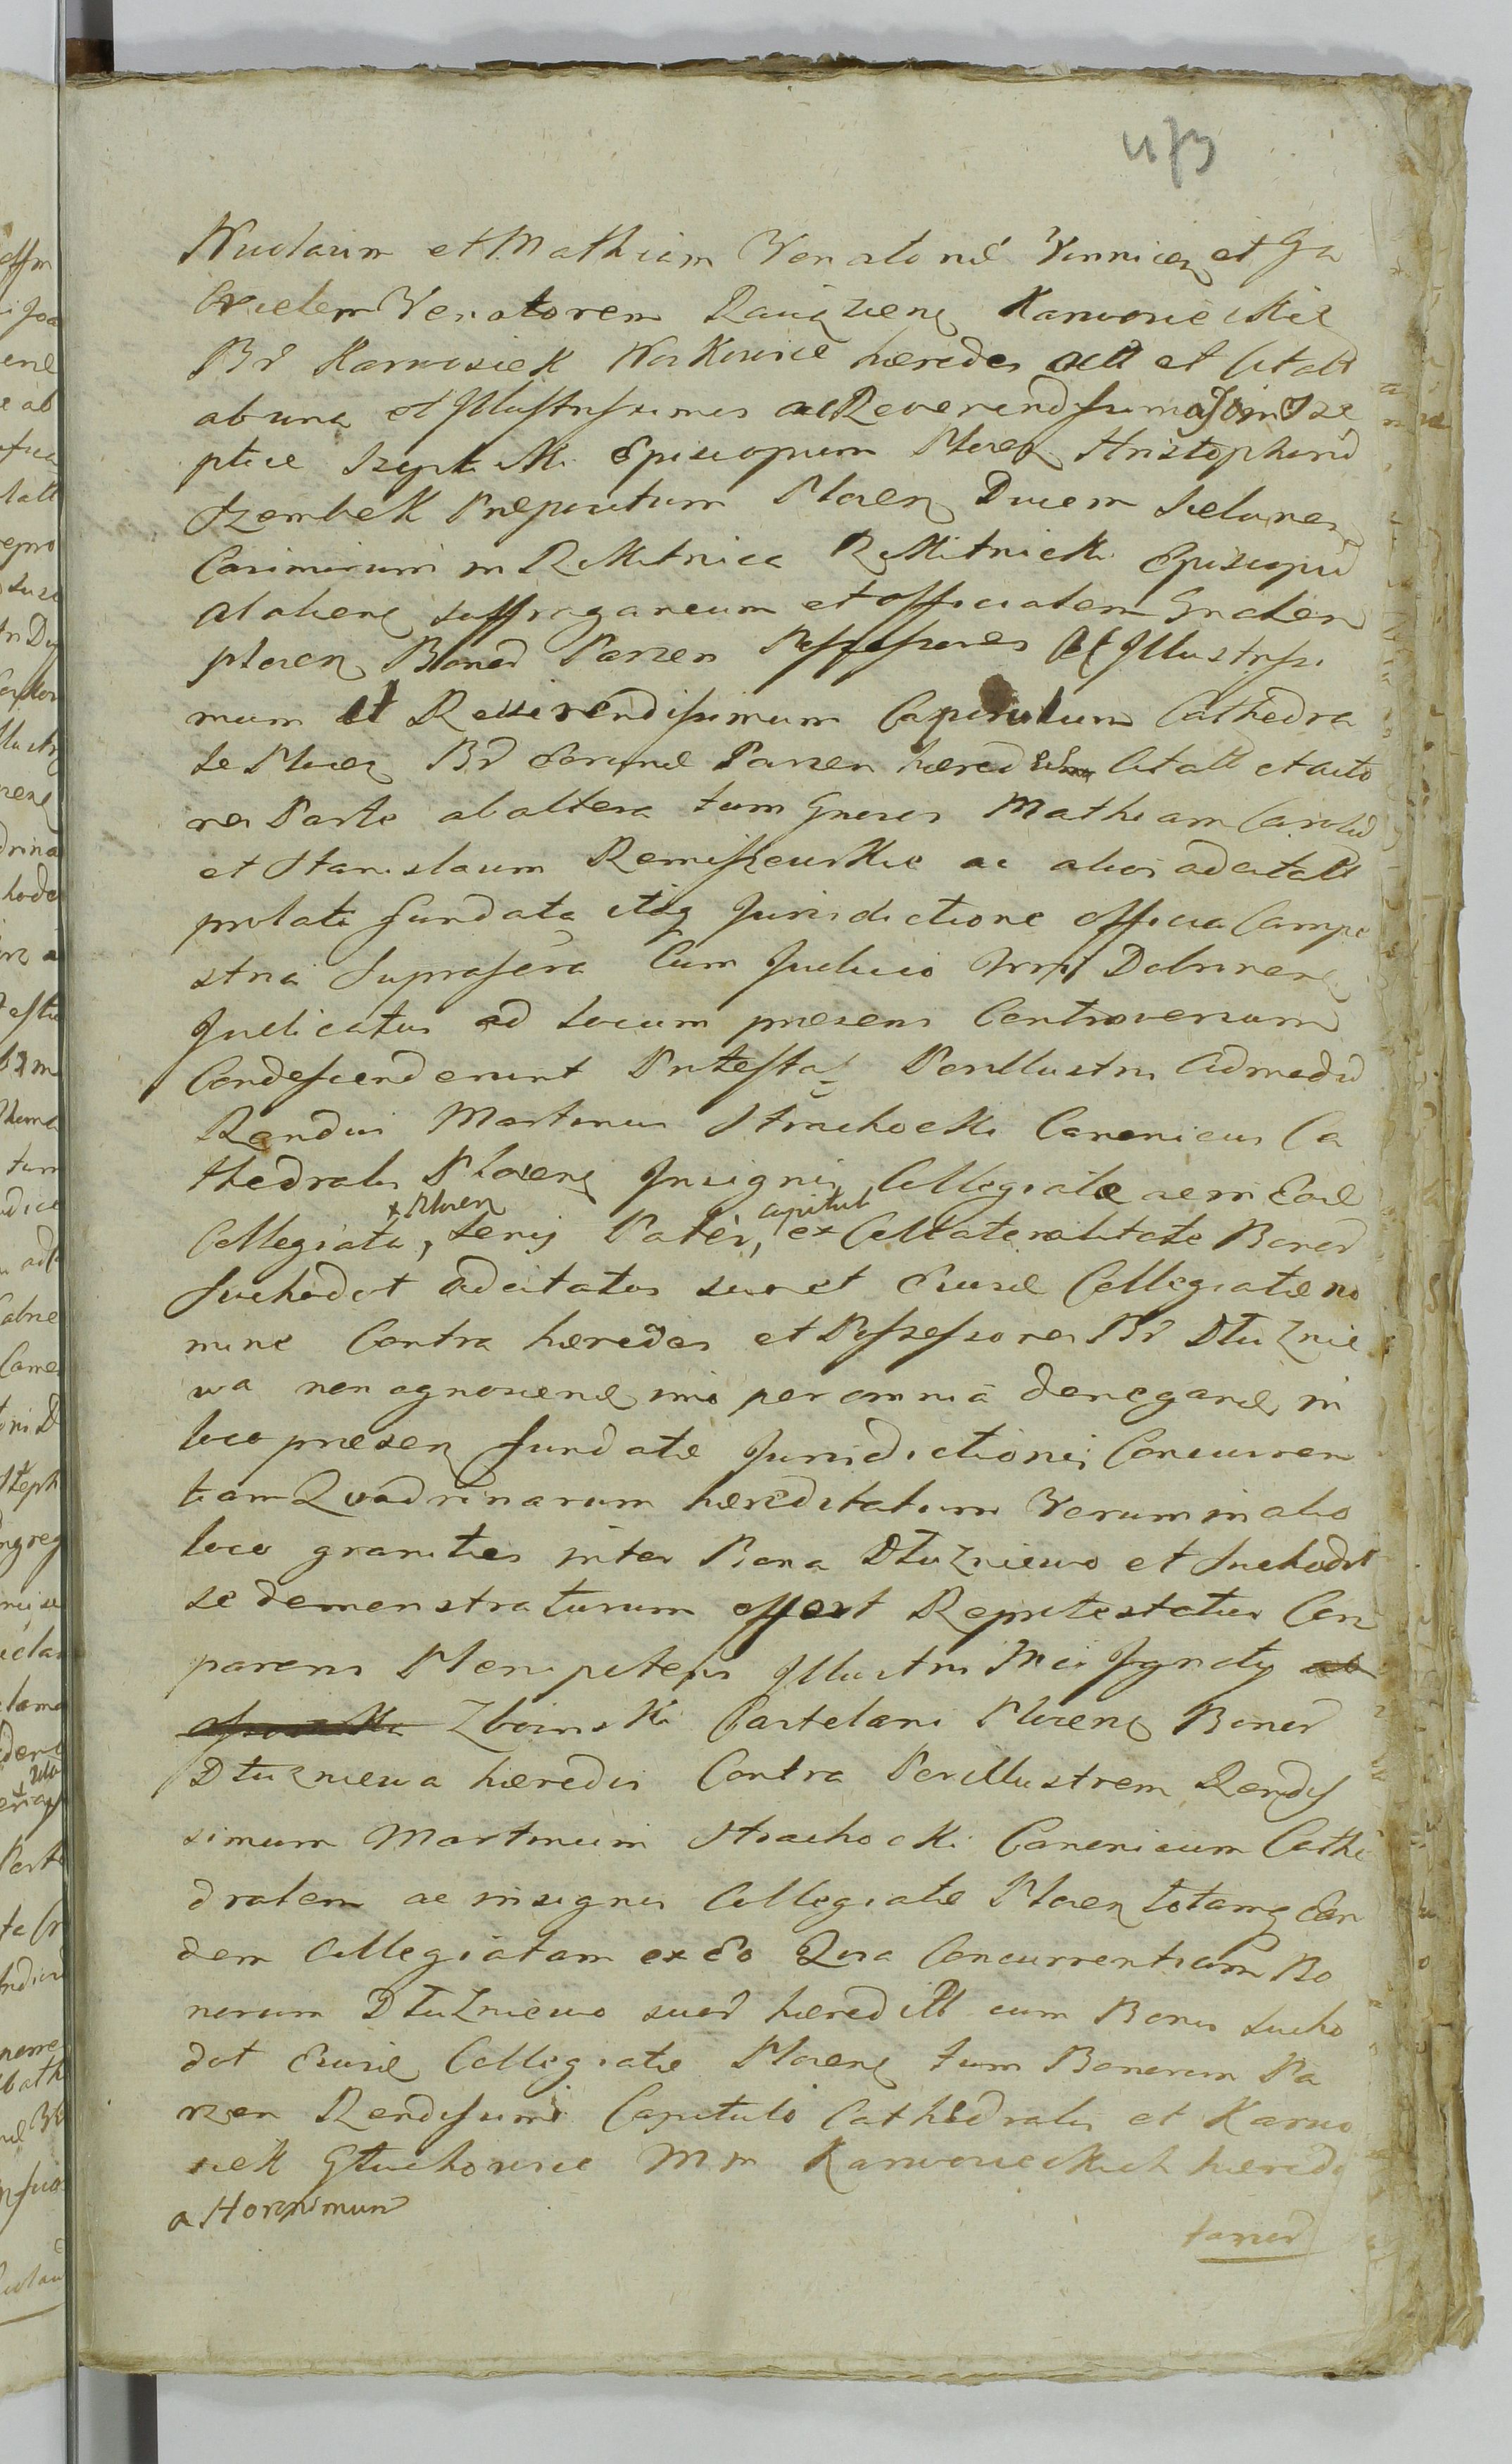 473
Nicolaum et Mathiam Venatoris Vinnicen et Ga
brielem Venatorem Raciązens Karwosieckie
Br Karwosiek Noskowice hæredes act et Citatt
ab una et Illustrissimos ac Reverendissimos
ptice Szepticki Episcopum Plocen Hristophorū
Szembek Præpositum Plocen Ducem Sielunen
Casimirum in Rokitnica Rokitnicki Episcopū
suffraganeum et officialem Gnalem
plocen Bonor Parzen Possessores Ac Illustrissi
mum et Reverendissimum Capitulum Cathedra
le Plocen Br Parzen hæred Citatt et acto
res Parte ab altera tum Gnosos Mathiam Carolū
et Stanislaum Remiszewskie ac alios adcitatt
prolata fundata itaq Jurisdictione officia Campe
stria Suprascra Cum Judicio Dobrinens
Judicatus ad locum præsens Controversum
Condescenderunt Protestat Perillustris Admodū
Rendus Martinus Strachocki Canonicus Ca
thedralis Plocens Insignis Collegiatæ
+ Plocen capitul
Collegiata, Patri, ex Collateralitate Bonor
Suchodot adcitatus suo et Collegiatæ no
mine Contra hæredes et Possessores Br Dłużnie
wa non agnoscend imo per omnia denegand in
loco præsen fundatæ Jurisdictionis Concurren
tiam Quadrinarum hæreditatum Verum in alio
loco granities inter Bona Dłużniewo et Suchodot
se demonstraturum offert Reprotestatur Com
parens Plenipotens Illustris Mci Ignaty
Zboinski Castelani Plocens Bonor
Dłużniewa hæredis Contra Perillustrem Rendis
simum Martinum Strachocki Canonicum Cathe
dralem ac insignis Collegiatæ Plocen totamq Ean
dem Collegiatam ex Eo Quia Concurrentiam Bo
norum Dłużniewo suor hæreditt cum Bonis Sucho
dot Collegiatæ Plocens tum Bonorum Pa
rzen Rendissimi Capituli Cathedralis et Karwo
siek Głuchowice Karwosieckich hæredi
tarior